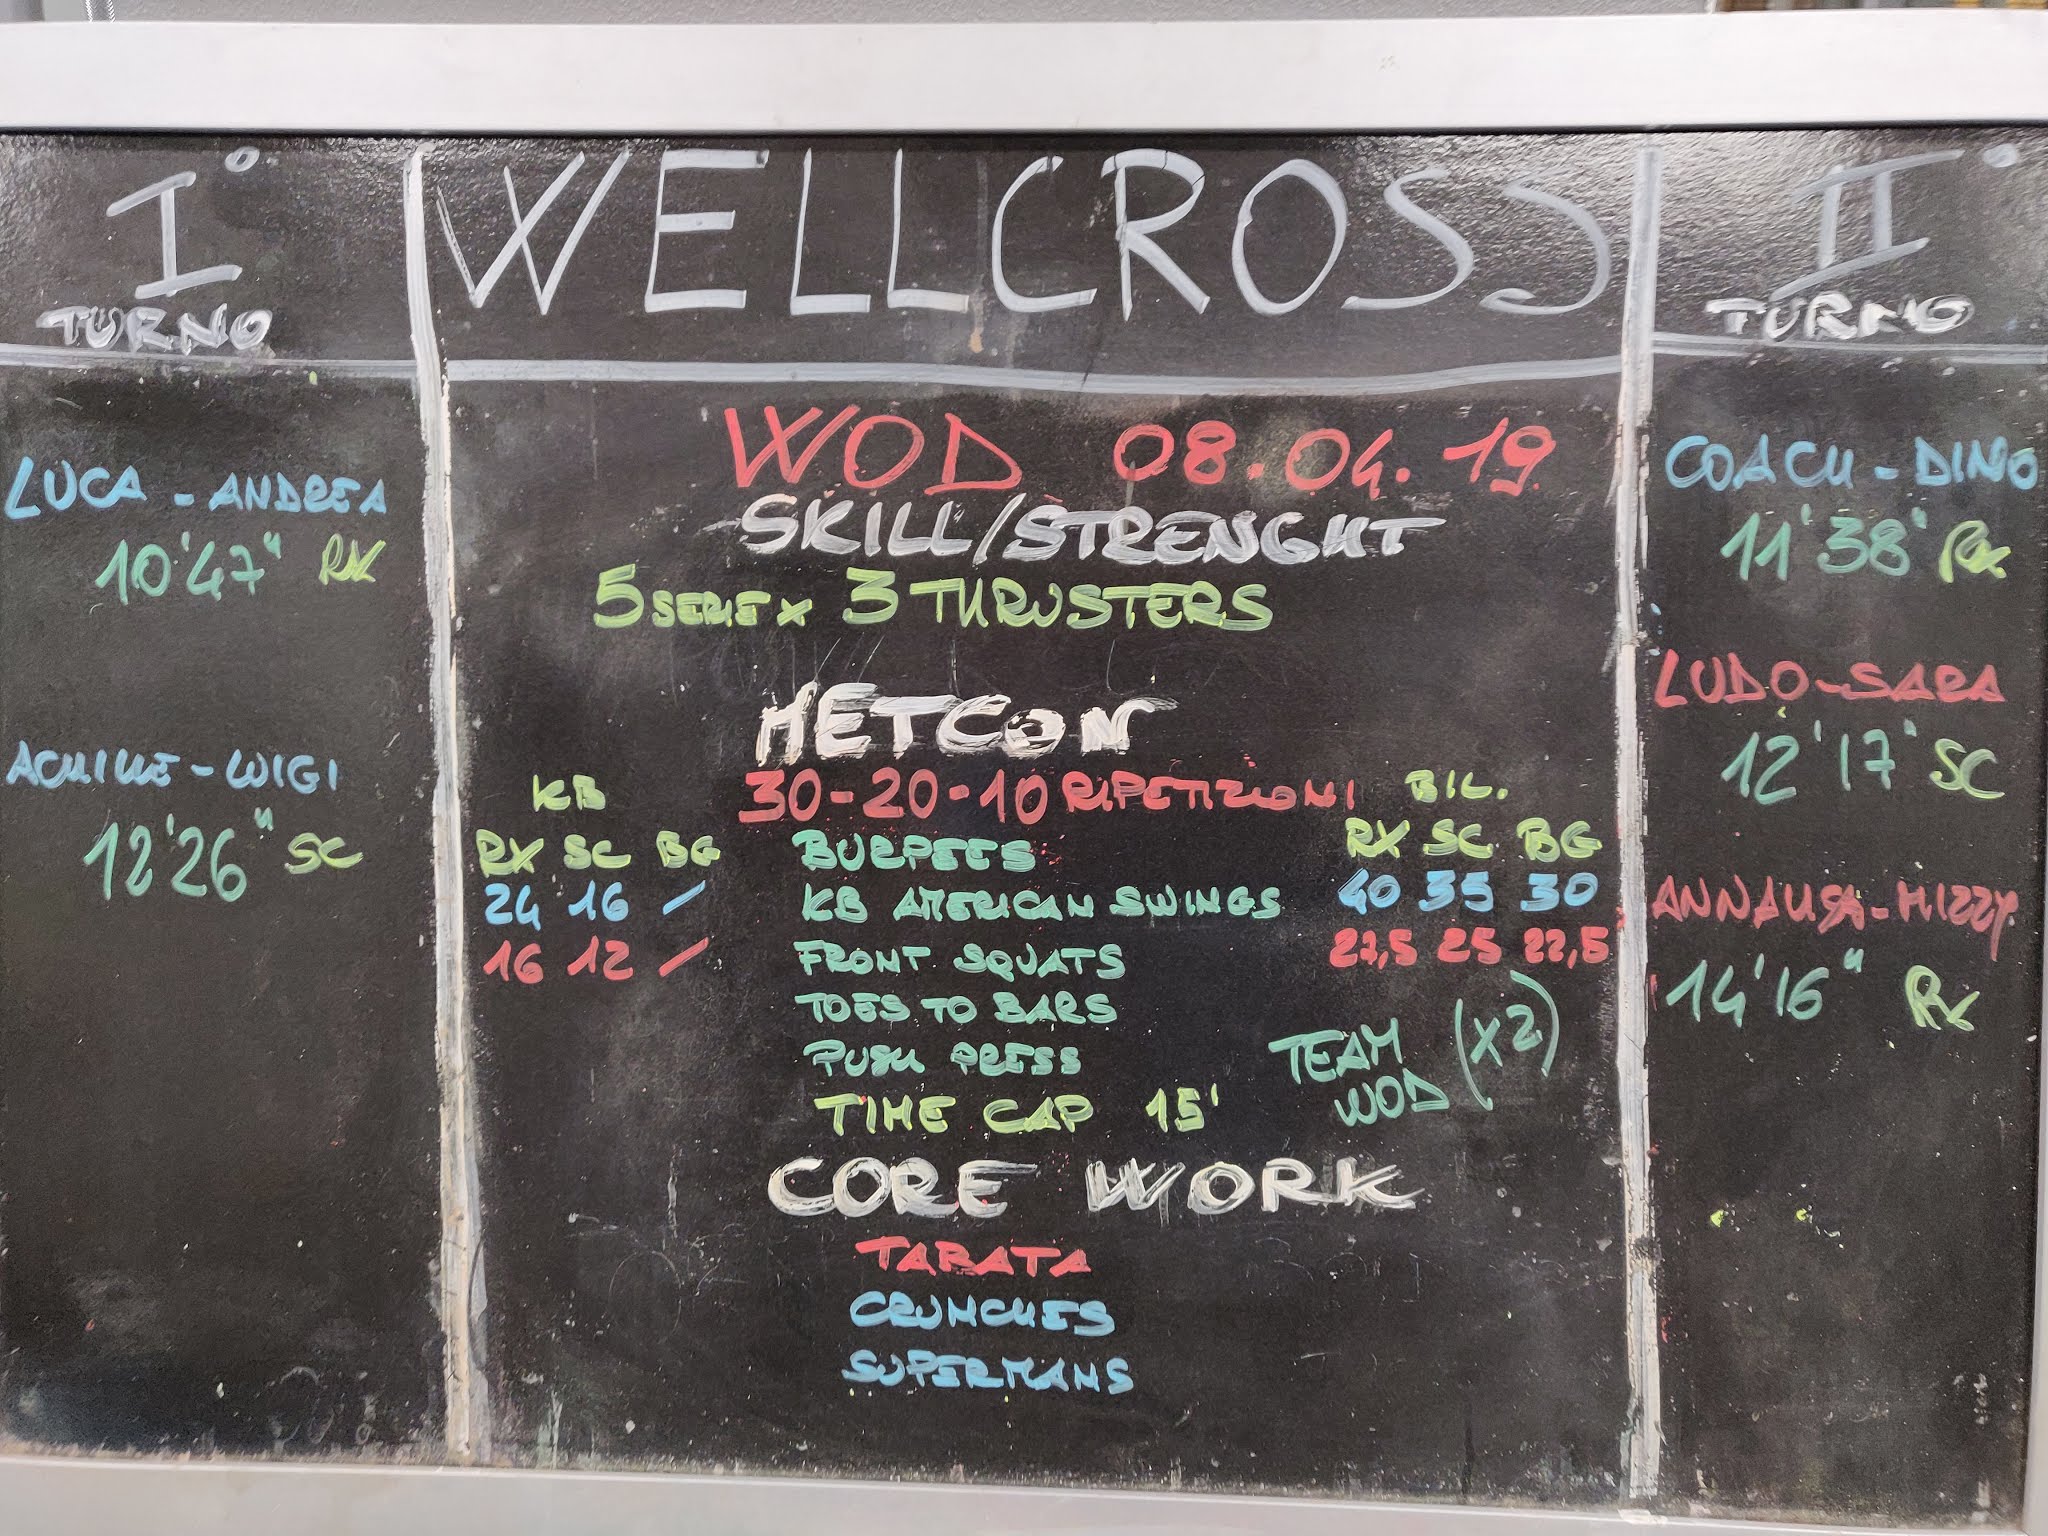 I°
TURNO
LUCA - ANDREA
10'47" RX
ACHILLE - WIGI
12'26" SC
WELLCROSS
WOD 08.04.19
SKILL/STRENGHT
5 SERIE x 3 THRUSTERS
METCON
30-20-10 RIPETIZIONI
KB
RX SC BG
24 16 /
16 12 /
BURPEES
KB AMERICAN SWINGS
FRONT SQUATS
TOES TO BARS
PUSH PRESS
TIME CAP 15'
BIL.
RX SC BG
40 35 30
27,5 25 22,5
TEAM WOD (x2)
CORE WORK
TABATA
CRUNCHES
SUPERMANS
II°
TURNO
COACH - DINO
11'38' RX
LUDO-SARA
12'17' SC
ANNALISA-MIZZY
14'16" RX